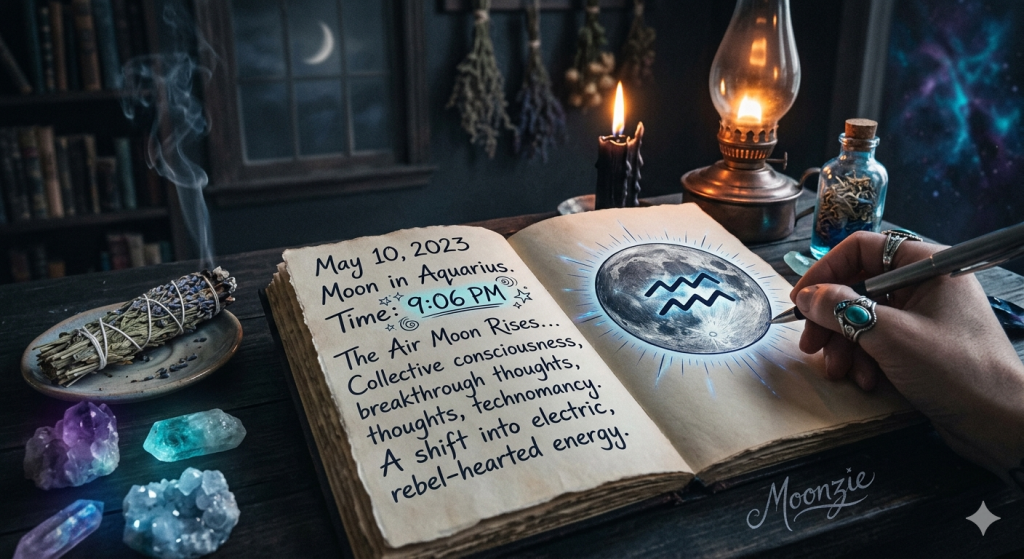 May 10, 2023
Moon in Aquarius.
Time: 9:06 PM
The Air Moon Rises...
Collective consciousness,
breakthrough thoughts,
thoughts, technomancy.
A shift into electric,
rebel-hearted energy.
Moonzie